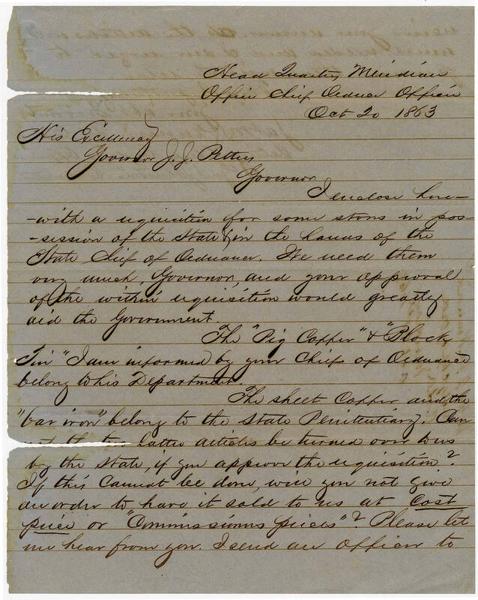 Head Quarters Meridian
Office Chief Ordnce Officer
Oct 20 1863
His Excellency
Governor J. J. Pettus
Governor
I enclose here-
-with a requisition for some stores in pos-
-session of the State & in the hands of the
State Chief of Ordnance. We need them
very much Governor, and your approval
of the within requisition would greatly
aid the Government.
The "Pig Copper" & "Block
Tin" I am informed by your Chief of Ordnance
belong to his Department.
The sheet Copper and the
"bar iron" belong to the State Penitentiary. Can
latter articles be turned over to us
by the State, if you approve the requisition?
If this cannot be done, will you not give
an order to have it sold to us at cost
price or "Commissioners prices"? Please let
me hear from you. I send an officer to